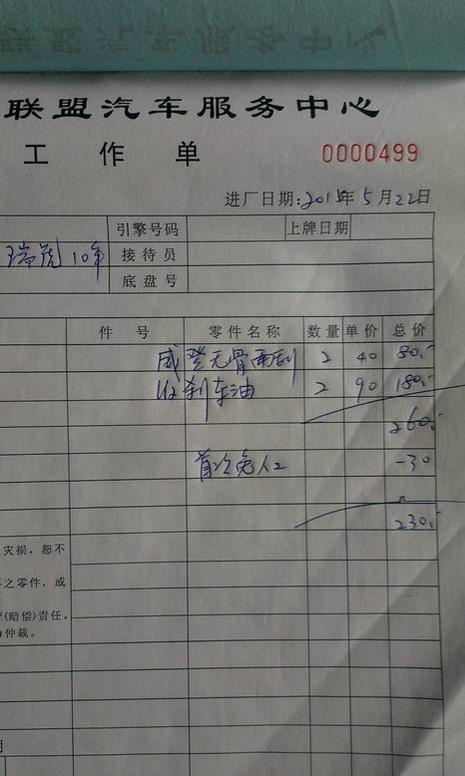 联盟汽车服务中心
工作单 0000499
进厂日期:2015年5月22日
引擎号码 上牌日期
瑞虎10年 接待员
底盘号
件号 零件名称 数量 单价 总价
威登无骨雨刮 2 40 80.-
刹车油 2 90 180.-
260.-
首次免人工 -30
230.-
灾损，恕不
之零件，或
(赔偿)责任。
仲裁。